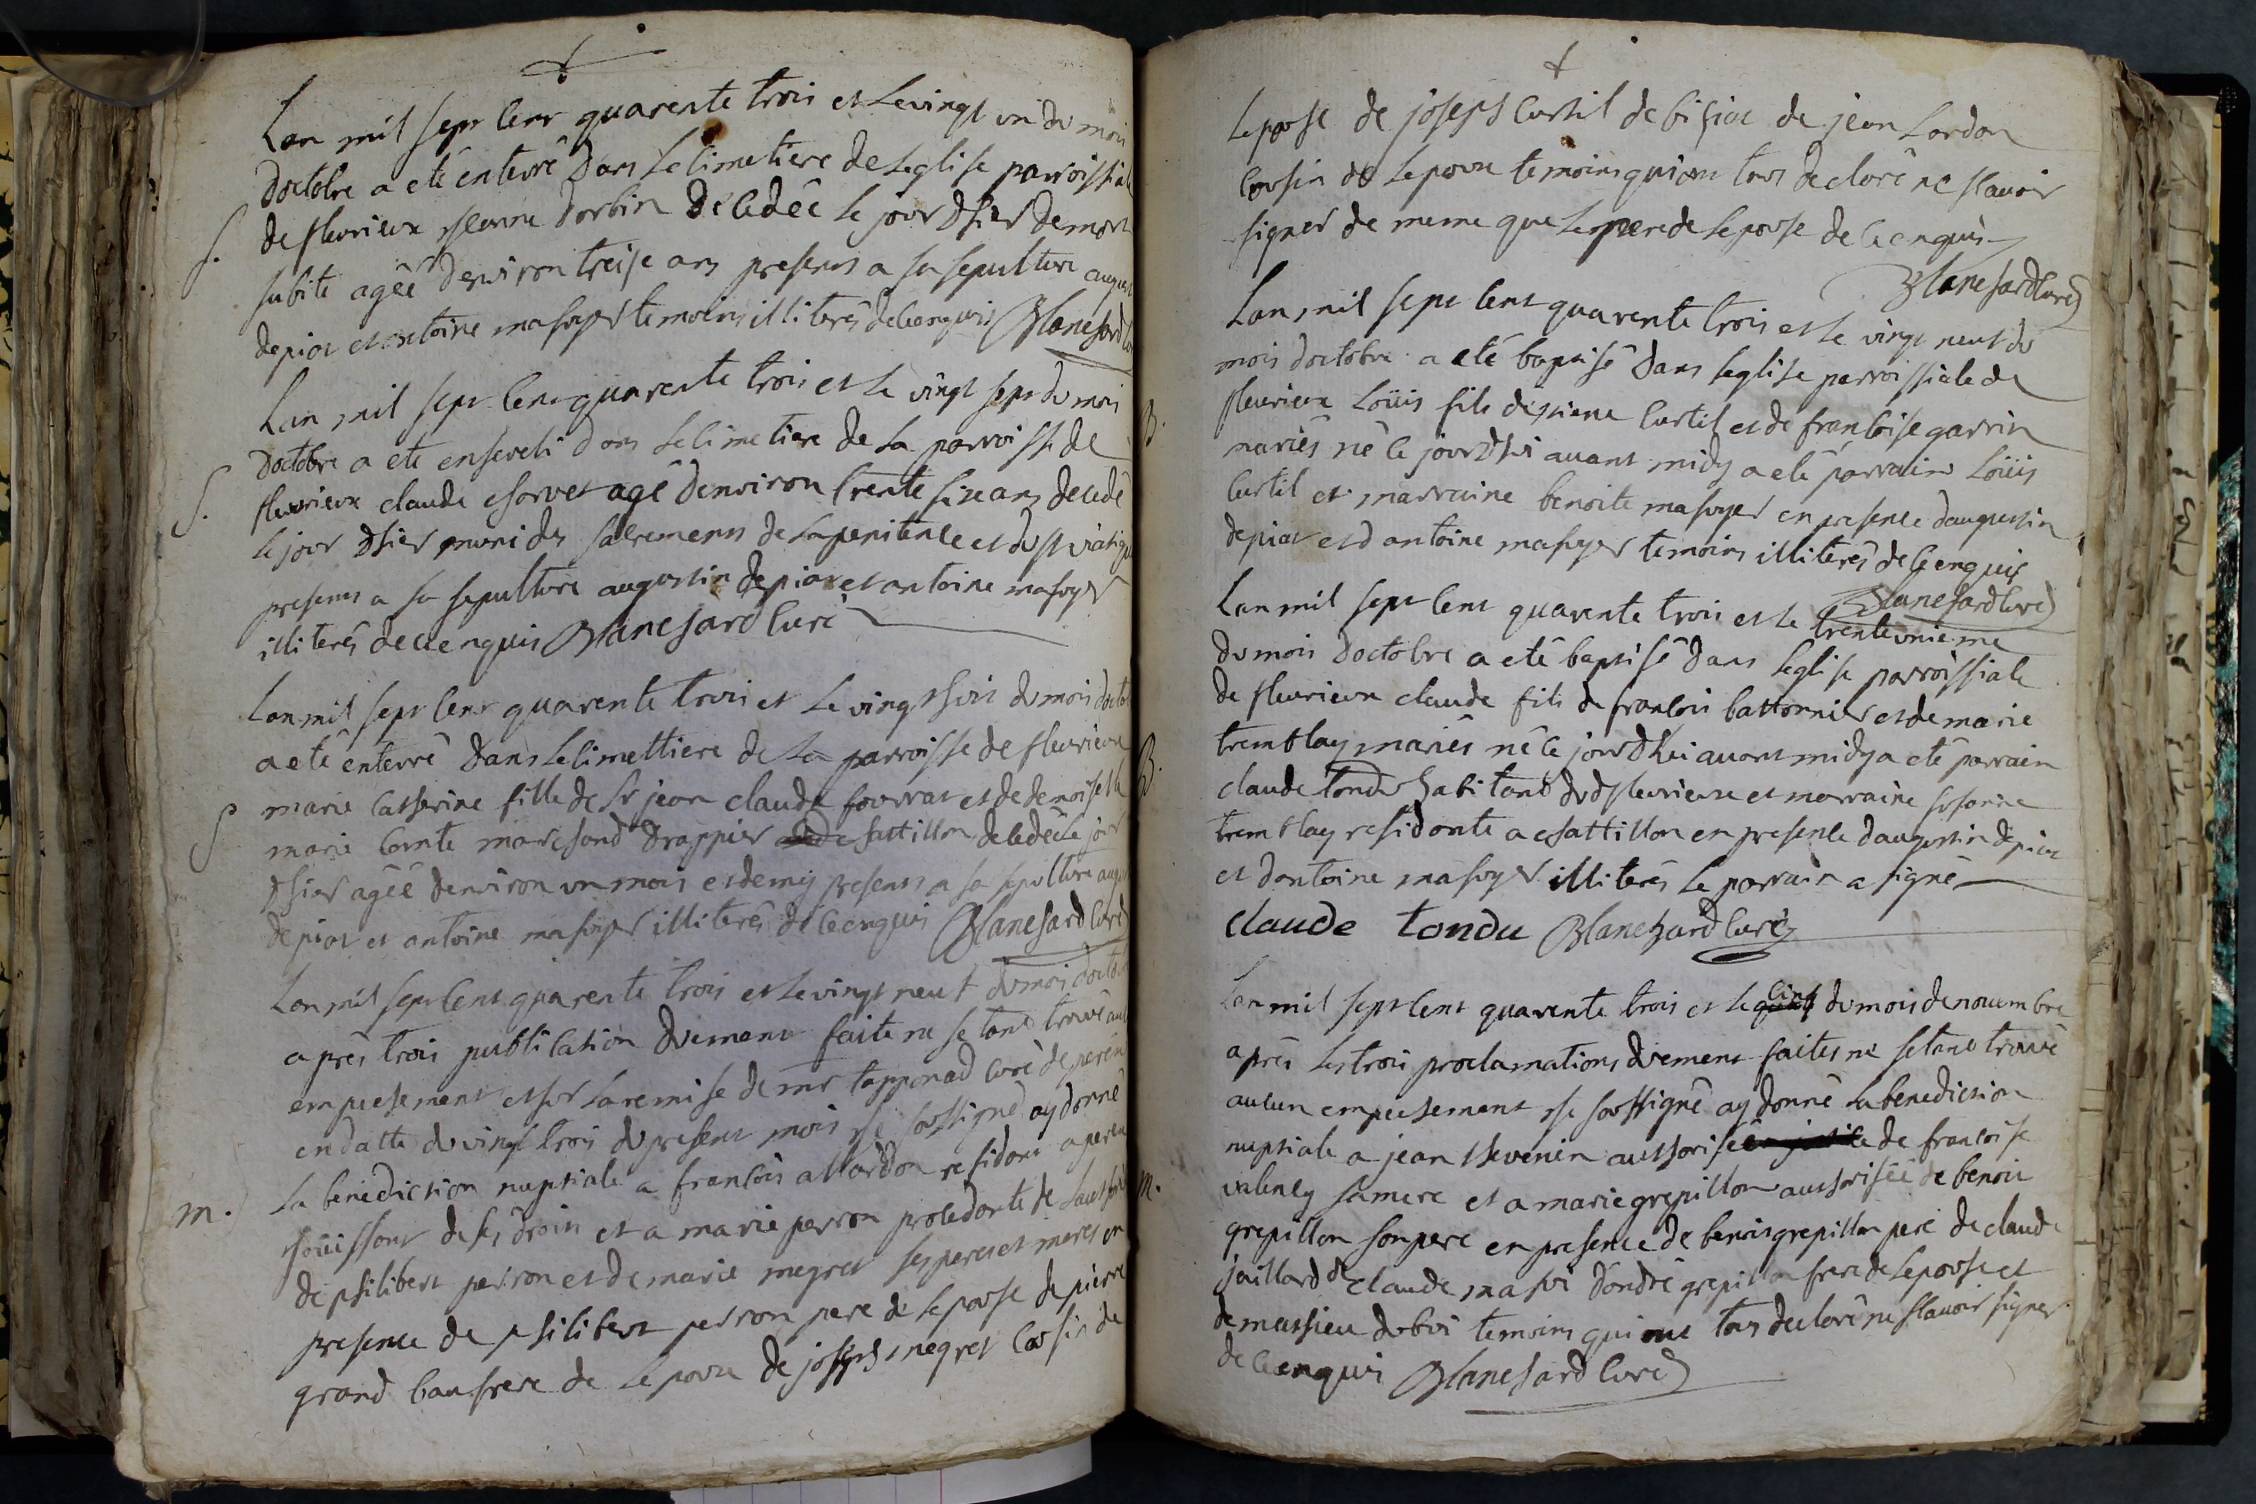 Lan mil sept cent quarente trois et le vingt un du mois
doctobre a eté enterré dans le cimetiere de leglise parroissiale
S.
de fleurieux jeanne dorbin décédée le jour dhier de mort
subite agée denviron treise ans presents a sa sepulture augustin
depiat et antoine masoyer temoins illiterés de ce enquis Blanchard curé
Lan mil sept cent quarente trois et le vingt sept du mois
doctobre a eté enseveli dans le cimetiere de la parroisse de
S.
fleurieux claude charvet agé denviron trente six ans decedé
le jour dhier muni des sacrements de la penitence et du st viatique
presents a sa sepulture augustin depiat et antoine masoyer
illiterés de ce enquis Blanchard curé
Lan mil sept cent quarente trois et le vingt huit du mois doctobre
a eté enterré dans le cimettiere de la parroisse de fleurieux
S
marie catherine fille de Sr jean claude fourrat et de demoiselle
marie comte marchand drappier de chattillon decedée le jour
dhier agée denviron un mois et demy presents a sa sepulture augustin
depiat et antoine masoyer illiterés de ce enquis Blanchard curé
Lan mil sept cent quarente trois et le vingt neuf du mois doctobre
après trois publication duement faite ne setant trouvé aucun
empechement et sur la remise de mr tapponad curé de perén
en datte du vingt trois du present mois je soussigné ay donné
m.
la benediction nuptiale a francois allardon residant a perén
jouissant de ses droits et a marie perron procedante de lauthorité
de philibert perron et de marie megret ses peres et meres en
presence de philibert perron pere de lepouse de pierre
grand beaufrere de lepoux de joseph megret cousin de
lepouse de joseph curtil de bisiat de jean lardon
cousin de lepoux temoins qui ont tous declaré ne scavoir
signer de meme que le pere de lepouse de ce enquis
Blanchard curé
Lan mil sept cent quarente trois et le vingt neuf du
mois doctobre a eté baptisé dans leglise parroissiale de
B.
fleurieux Loüis fils de pierre curtil et de francoise garrin
mariés né ce jourdhui avant midy a eté parrain Loüis
curtil et marraine benoite masoyer en presence daugustin
depiat et dantoine masoyer temoins illiterés de ce enquis
Blanchard curé
Lan mil sept cent quarente trois et le trente unieme
du mois doctobre a eté baptisé dans leglise parroissiale
de fleurieux claude fils de francois battonnier et de marie
B.
tremblay mariés né ce jourdhui avant midy a eté parrain
claude tondu habitant dud fleurieux et marraine susanne
tremblay residante a chattillon en presence daugustin depiat
et dantoine masoyer illiterés le parrain a signé
claude tondu Blanchard curé
Lan mil sept cent quarente trois et le cinq du mois de novembre
après les trois proclamations duement faites ne setant trouvé
aucun empechement je soussigné ay donné la benediction
nuptiale a jean thevenin authorisé de francoise
m.
valency sa mere et a marie grepillon authorisée de benoit
grepillon son pere en presence de benoit grepillon pere de claude
jaillard de claude masoi dandré grepillon frere de lepouse et
de mathieu dubois temoins qui ont tous declaré ne scavoir signer
de ce enquis Blanchard curé